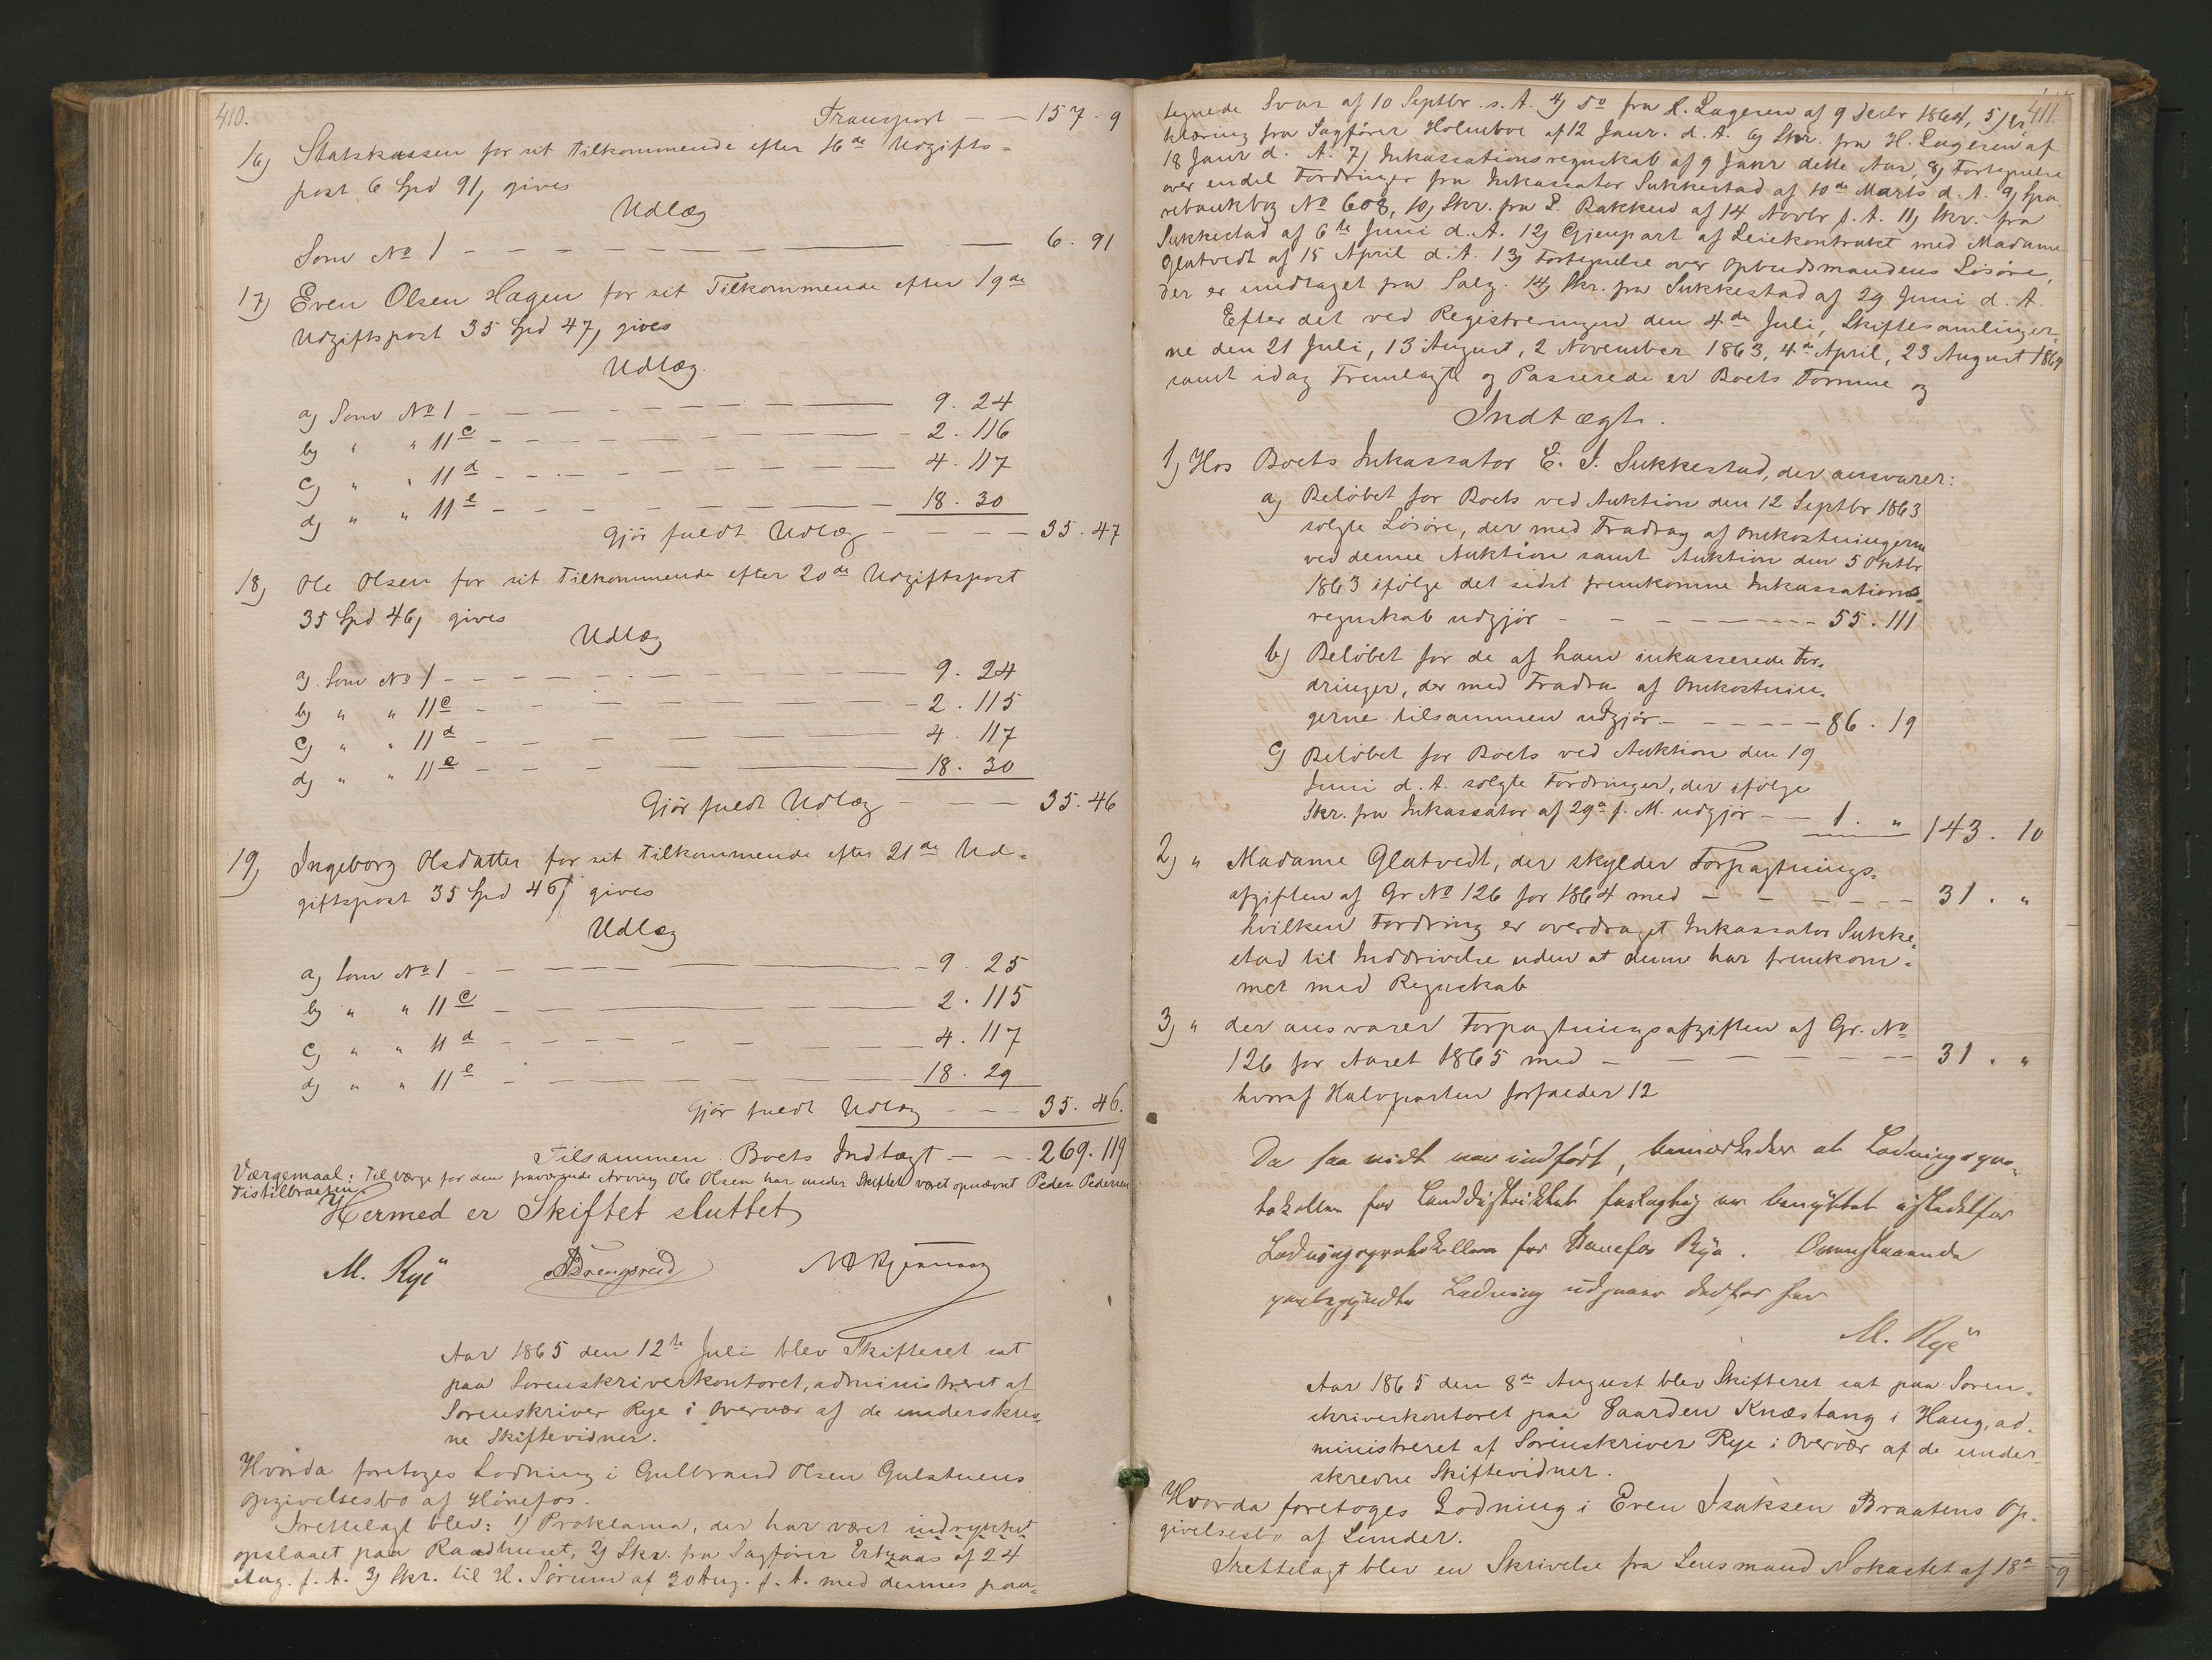 410.
Transport — — 157. 9
16) Statskassen for sit Tilkommende efter 16de Udgifts=
post 6 Spd 91, gives
Udlæg
Som No 1 — — — — — 6. 91
17) Even Olsen Hagen for sit Tilkommende efter 19de
Udgiftspost 35 Spd 47, gives
Udlæg.
a) Som No 1 — — — — 9. 24
b) " " 11c — — — — 2. 116
c) " " 11d — — — — 4. 117
d) " " 11e — — — — 18. 30
Gjør fuldt Udlæg — — — 35. 47
18) Ole Olsen for sit Tilkommende efter 20de Udgiftspost
35 Spd 46, gives
Udlæg
a) Som No 1 — — — — 9. 24
b) " " 11c — — — — 2. 115
c) " " 11d — — — — 4. 117
d) " " 11e — — — — 18. 30
Gjør fuldt Udlæg — — — 35. 46
19) Ingeborg Olsdatter for sit Tilkommende efter 21de Ud=
giftspost 35 Spd 46, gives
Udlæg
a) Som No 1 — — — — 9. 25
b) " " 11c — — — — 2. 115
c) " " 11d — — — — 4. 117
d) " " 11e — — — — 18. 29
Gjør fuldt Udlæg — — — 35. 46.
Tilsammen Boets Indtægt — — 269. 119
Værgemaal: Til Værge for den fraværende Arving Ole Olsen har under Skiftet været opnævnt Peder Pedersen
Tistilbraaten
Hermed er Skiftet sluttet
M. Rye
Aar 1865 den 12te Juli blev Skifteret sat
paa Sorenskriverkontoret, administreret af
Sorenskriver Rye i Overvær af de underskrev=
ne Skiftevidner.
Hvorda foretoges Lodning i Gulbrand Olsen Gulstuens
Opgivelsesbo af Hönefos.
Irettelagt blev: 1) Proklama, der har været indrykket
opslaaet paa Raadhuset, 2) Skr. fra Sagfører af 24
Aug. f. A. 3) Skr. til H. Sørum af 30 Aug. f. A. med dennes paa=
411.
tegnede Svar af 10 Septbr. s. A. 4) Do fra H. Lagesen af 9 Decbr 1864, 5) Er=
klæring fra Sagfører Holmboe af 12 Janr. d. A. 6) Skr. fra H. Lagesen af
18 Janr d. A. 7) Inkassationsregnskab af 9 Janr dette Aar, 8) Fortegnelse
over endel Fordringer fra Inkassator Sukkestad af 10de Marts d. A. 9) Spa=
rebankbog No 608, 10) Skr. fra L. Bakkerud af 14 Novbr f. A. 11) Skr. fra
Sukkestad af 6te Juni d. A. 12) Gjenpart af Leiekontrakt med Madame
Glatvedt af 15 April d. A. 13) Fortegnelse over Opbudsmandens Løsøre,
der er undtaget fra Salg. 14) Skr. fra Sukkestad af 29 Juni d. A.
Efter det ved Registreringen den 4de Juli, Skiftesamlinger=
ne den 21 Juli, 13 August, 2 November 1863, 4de April, 23 August 1864
samt idag Fremlagte og Passerede er Boets Formue og
Indtægt.
1) Hos Boets Inkassator E. I. Sukkestad, der ansvarer:
a) Beløbet for Boets ved Auktion den 12 Septbr 1863
solgte Løsøre, der med Fradrag af Omkostningerne
ved denne Auktion samt Auktion den 5 Oktbr
1863 ifølge det sidst fremkomne Inkassations=
regnskab udgjør — — — — 55. 111
b) Beløbet for de af ham inkasserede For=
dringer, der med Fradrag af Omkostnin=
gerne tilsammen udgjør — — — — 86. 19
c) Beløbet for Boets ved Auktion den 19
Juni d. A. solgte Fordringer, der ifølge
Skr. fra Inkassator af 29de f. M. udgjør — — 1. " 143. 10
2) " Madame Glatvedt, der skylder Forpagtnings=
afgiften af Gr No 126 for 1864 med — — — — 31. "
hvilken Fordring er overdraget Inkassator Sukke=
stad til Inddrivelse uden at denne har fremkom=
met med Regnskab
3) " der ansvarer Forpagtningsafgiften af Gr. No
126 for Aaret 1865 med — — — — 31. "
hvoraf Halvparten forfalder 12
Da saa vidt var indført, bemærkedes at Lodningspro=
tokollen for Landdistriktet var benyttet istedetfor
Lodningsprotokollen for Hønefos Bye. Ovenstaaende
paabegyndte Lodning udgaaer derfor her
M. Rye
Aar 1865 den 8de August blev Skifteret sat paa Soren=
skriverkontoret paa Gaarden Knæstang i Haug, ad=
ministreret af Sorenskriver Rye i Overvær af de under=
skrevne Skiftevidner.
Hvorda foretoges Lodning i Even Isaksen Braatens Op=
givelsesbo af Lunder.
Irettelagt blev en Skrivelse fra Lensmand Mokastet af 18de